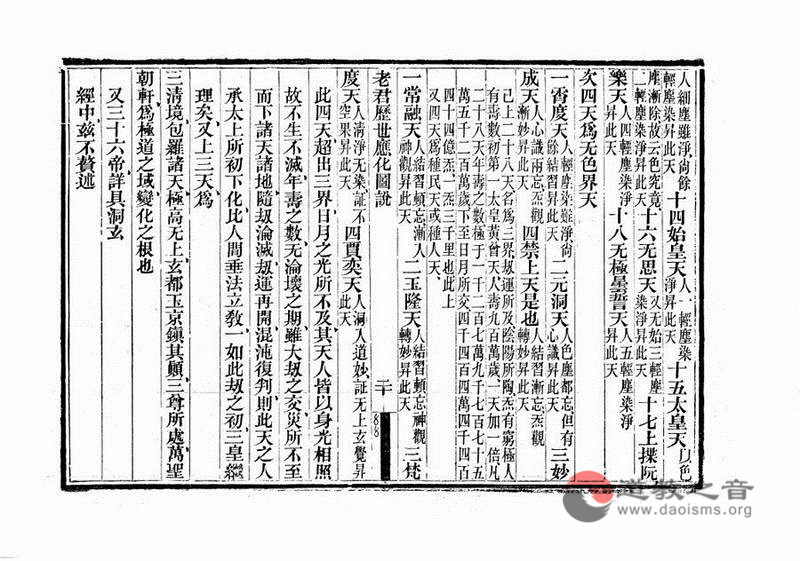 人細塵雖淨尚餘輕塵染昇此天 十四始皇天人一輕塵染淨昇此天 十五太皇天以色
塵漸除故云色究竟二輕塵染淨昇此天 十六无思天又无始三輕塵染淨昇此天 十七上揲阮
樂天人四輕塵染淨昇此天 十八无極曇誓天人五輕塵染淨昇此天
次四天爲无色界天
一霄度天人輕塵染雖淨尚餘結習昇此天 二元洞天人色塵都忘但有心識昇此天 三妙
成天人心識兩忘炁觀漸妙昇此天 四禁上天是也人結習漸忘炁觀轉妙昇此天
已上二十八天名爲三界劫運所及陰陽所陶炁有窮極人
有壽數初第一太皇黃曾天人壽九百萬歲一天加一倍凡
二十八天年壽之數極于一千二百七萬九千七百七十五
萬五千二百萬歲下至日月所交四千四百四萬四千四百
四十四億炁一炁三千里也此上
又四天爲種民天或種人天
一常融天人結習頓忘漸入神觀昇此天 二玉隆天人結習頓忘神觀轉妙昇此天 三梵
老君歷世應化圖說 二十
度天人淸淨无染証不空果昇此天 四賈奕天人洞入道妙証无上玄覺昇此天
此四天超出三界日月之光所不及其天人皆以身光相照
故不生不滅年壽之數无淪壞之期雖大劫之交災所不至
而下諸天諸地隨劫淪滅劫運再開混沌復判則此天之人
承太上所初下化比人間垂法立敎一如此劫之初三皇繼
理矣又上三天爲
三淸境包羅諸天極高无上玄都玉京鎭其顚三尊所處萬聖
朝軒爲極道之域變化之根也
又三十六帝詳具洞玄
經中茲不贅述
道教之音
www.daoisms.org